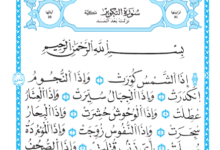 سُورَةُ التَّكْوِيرِ مَكِّيَّةٌ
بِسْمِ اللَّهِ الرَّحْمَٰنِ الرَّحِيمِ
إِذَا الشَّمْسُ كُوِّرَتْ وَإِذَا النُّجُومُ
انكَدَرَتْ وَإِذَا الْجِبَالُ سُيِّرَتْ وَإِذَا الْعِشَارُ
عُطِّلَتْ وَإِذَا الْوُحُوشُ حُشِرَتْ وَإِذَا الْبِحَارُ
سُجِّرَتْ وَإِذَا النُّفُوسُ زُوِّجَتْ وَإِذَا الْمَوْءُودَةُ
سُئِلَتْ بِأَيِّ ذَنبٍ قُتِلَتْ وَإِذَا الصُّحُفُ